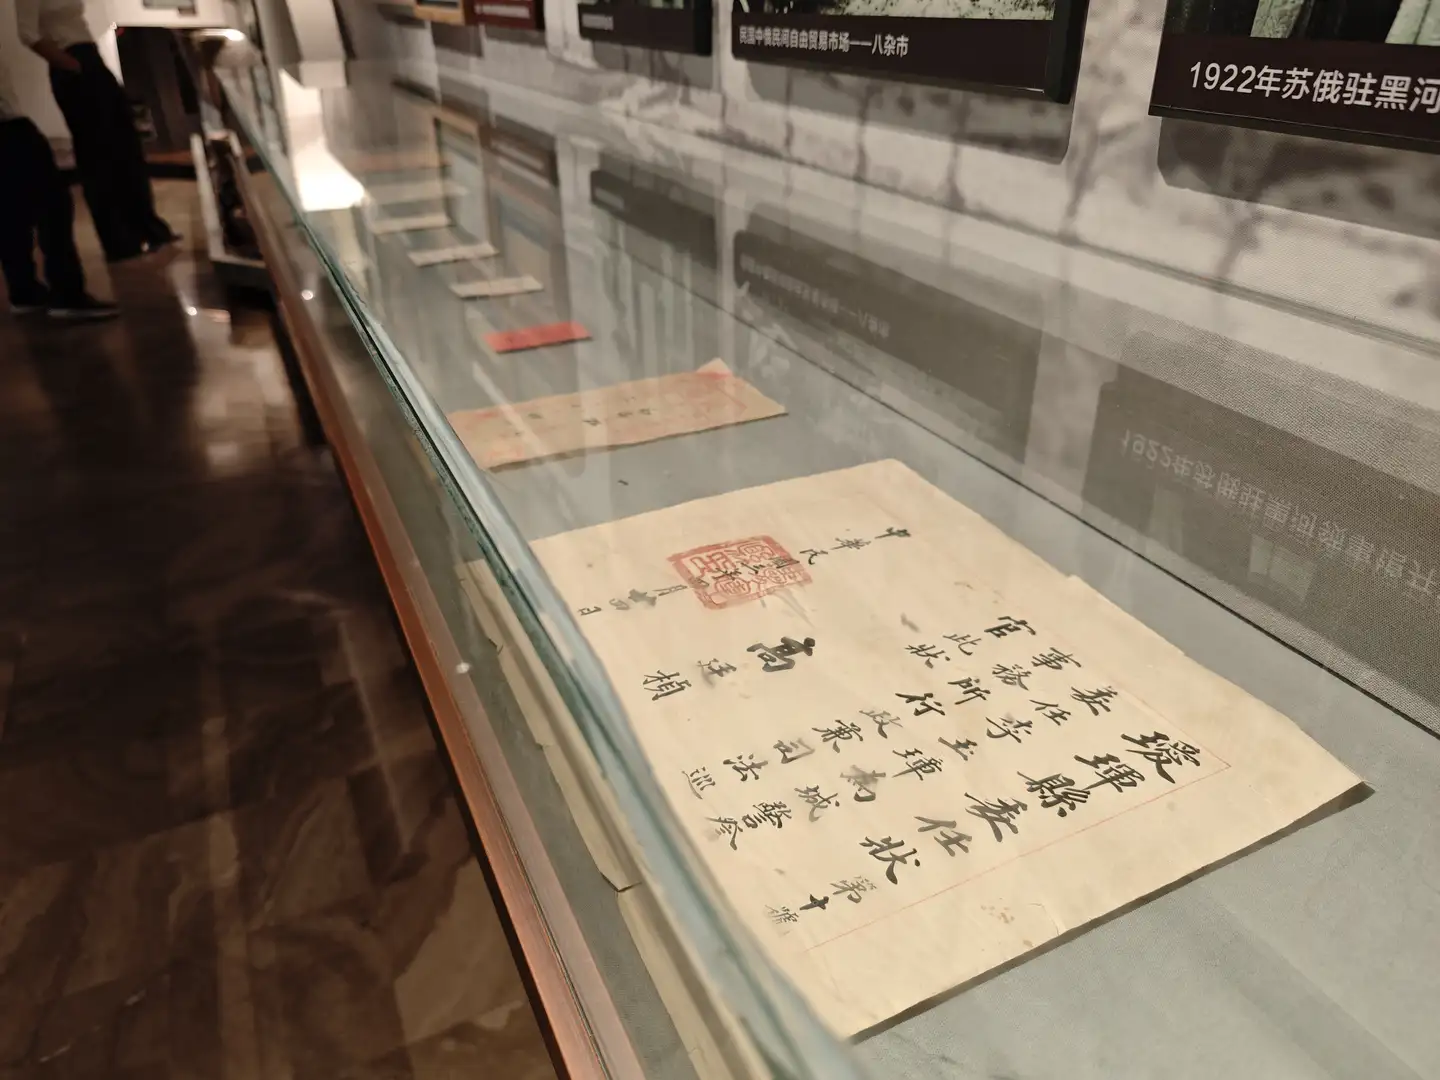 民国中俄民间自由贸易市场——八杂市
1922年苏俄驻黑河
璦琿縣委任狀第十號
委任李玉琿為城警察
事務所行政兼司法巡
官此狀
高廷楨
中華民國
月廿四日